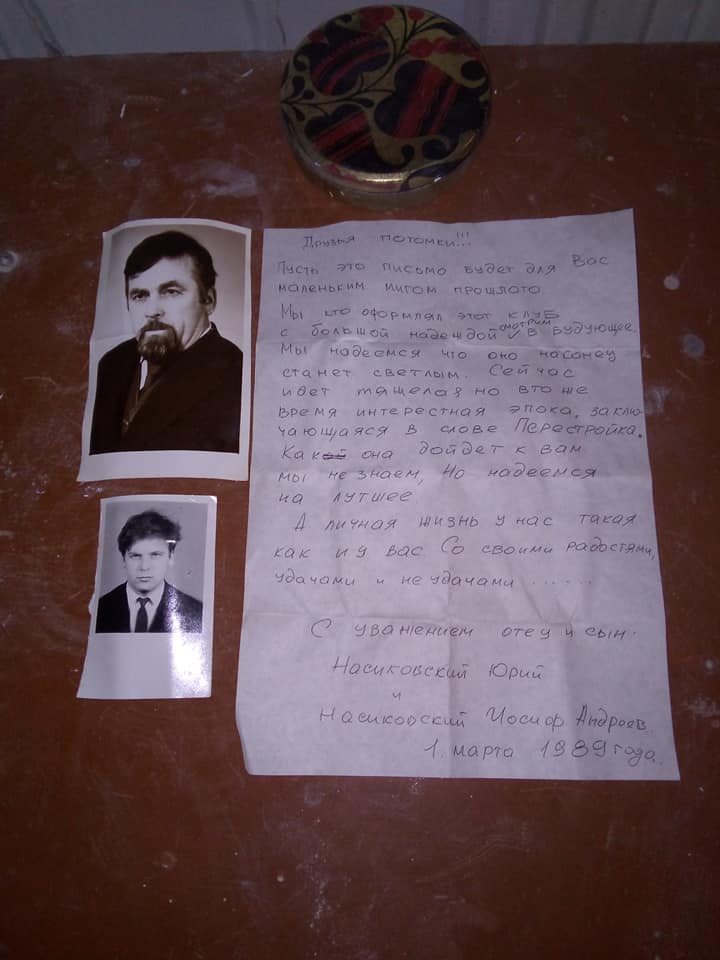 Друзья потомки!!!
Пусть это письмо будет для Вас
маленьким мигом прошлого
Мы кто оформлял этот клуб
с большой надеждой смотрим в будующее.
Мы надеемся что оно наконец
станет светлым. Сейчас
идет тяжелая но вто же
время интерестная эпоха, заклю-
чающаяся в слове Перестройка.
Как она дойдет к вам
мы не знаем, Но надеемся
на лутшее.
А личная жизнь у нас такая
как и у вас Со своими радостями,
удачами и не удачами ......
С уважением отец и сын.
Насиковский Юрий
и
Насиковский Иосиф Андреев.
1. марта 1989 года.